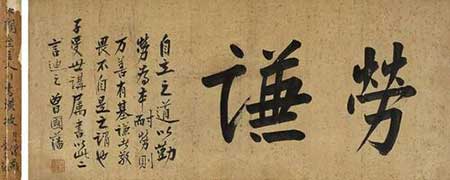 勞謙
自立之道以勤
勞為本耐勞則
万善有基謙者敬
畏不自是之謂也
子受世講属書此二
言迪之 曾國藩